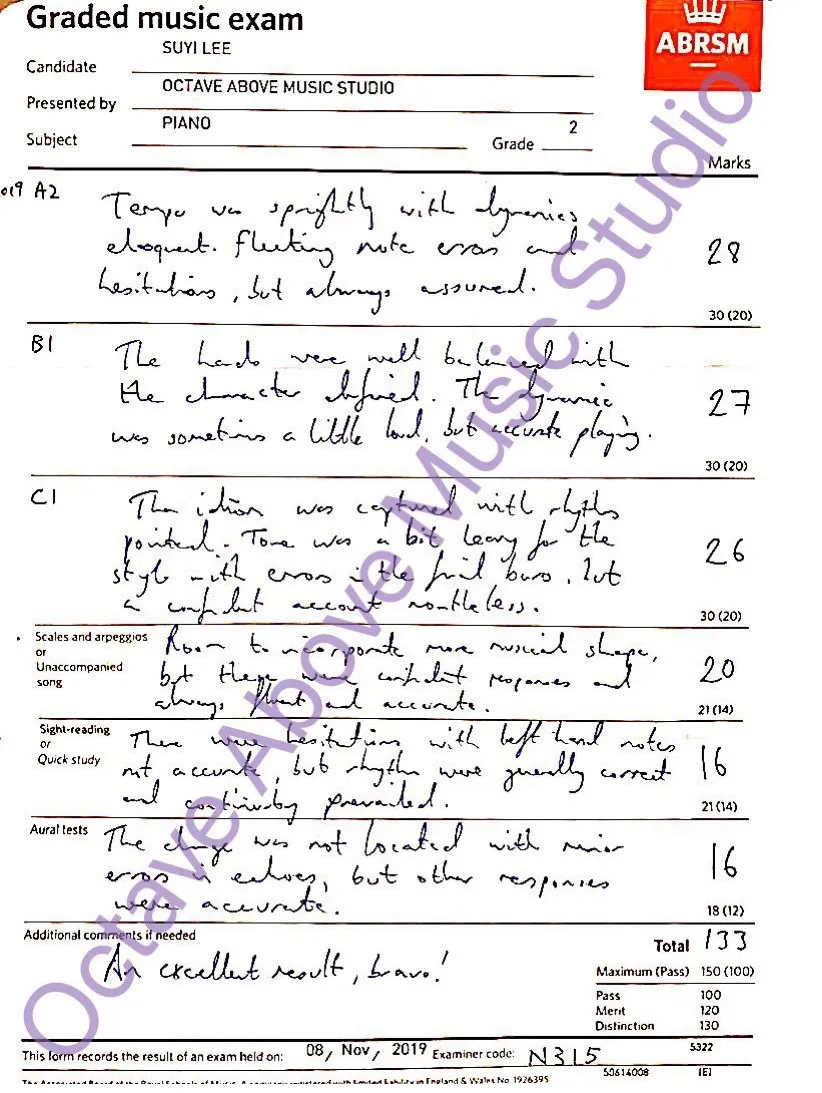 Graded music exam
ABRSM
SUYI LEE
Candidate
OCTAVE ABOVE MUSIC STUDIO
Presented by
PIANO
Subject
Grade 2
Marks
2019 A2
Tempo was sprightly with dynamics
eloquent. Fleeting note errors and
hesitations, but always assured.
28
30 (20)
B1
The hands were well balanced with
the character defined. The dynamic
was sometimes a little loud, but accurate playing.
27
30 (20)
C1
The idiom was captured with rhythms
pointed. Tone was a bit heavy for the
style with errors in the final bars, but
a confident account nonetheless.
26
30 (20)
Scales and arpeggios
or
Unaccompanied
song
Room to incorporate more musical shape,
but these were confident responses and
always fluent and accurate.
20
21 (14)
Sight-reading
or
Quick study
There were hesitations with left hand notes
not accurate, but rhythm were generally correct
and continuity prevailed.
16
21 (14)
Aural tests
The change was not located with minor
errors in echoes, but other responses
were accurate.
16
18 (12)
Additional comments if needed
An excellent result, bravo!
Total 133
Maximum (Pass) 150 (100)
Pass 100
Merit 120
Distinction 130
This form records the result of an exam held on: 08, Nov, 2019 Examiner code: N315
5322
50614008 (E)
The Associated Board of the Royal Schools of Music. A company registered with limited liability in England & Wales No 1926395
Octave Above Music Studio